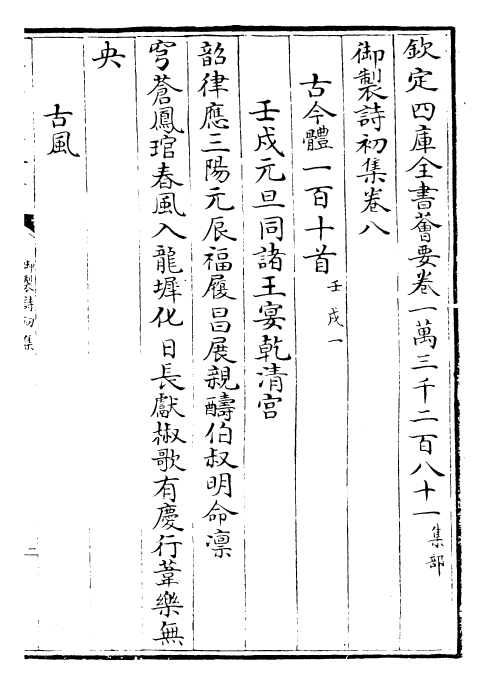 欽定四庫全書薈要卷一萬三千二百八十一集部
御製詩初集卷八
古今體一百十首壬戌一
壬戌元旦同諸王宴乾清宮
韶律應三陽元辰福履昌展親疇伯叔明命凜
穹蒼鳳琯春風入龍墀化日長獻椒歌有慶行葦樂無
央
古風
御製詩初集
二